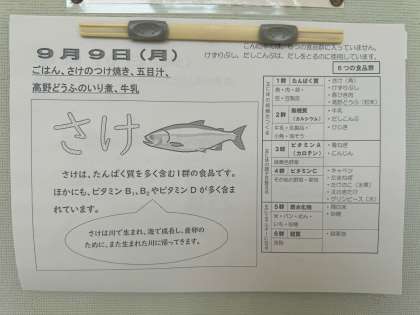 9月9日（月）
ごはん、さけのつけ焼き、五目汁、
高野どうふのいり煮、牛乳
さけ
さけは、たんぱく質を多く含む1群の食品です。
ほかにも、ビタミンB₁、B₂やビタミンDが多く含ま
れています。
さけは川で生まれ、海で成長し、産卵の
ために、また生まれた川に帰ってきます。
6つの食品群に入っていません。
けずりぶし、だしこんぶは、だしをとるのに使用しています。
6つの食品群
1群 たんぱく質
魚・肉・卵・
豆・豆製品
・さけ（角）
・けずりぶし
・高野どうふ（粉末）
2群 無機質
（カルシウム）
牛乳・乳製品・
小魚・海そう
・牛乳
・だしこんぶ
・ひじき
3群 ビタミンA
（カロテン）
緑黄色野菜
・にんじん
4群 ビタミンC
その他の野菜・果物
・キャベツ
・たまねぎ
・たけのこ（水煮）
・グリンピース（冷）
5群 炭水化物
米・パン・めん・
いも・砂糖
・砂糖
6群 脂質
油脂